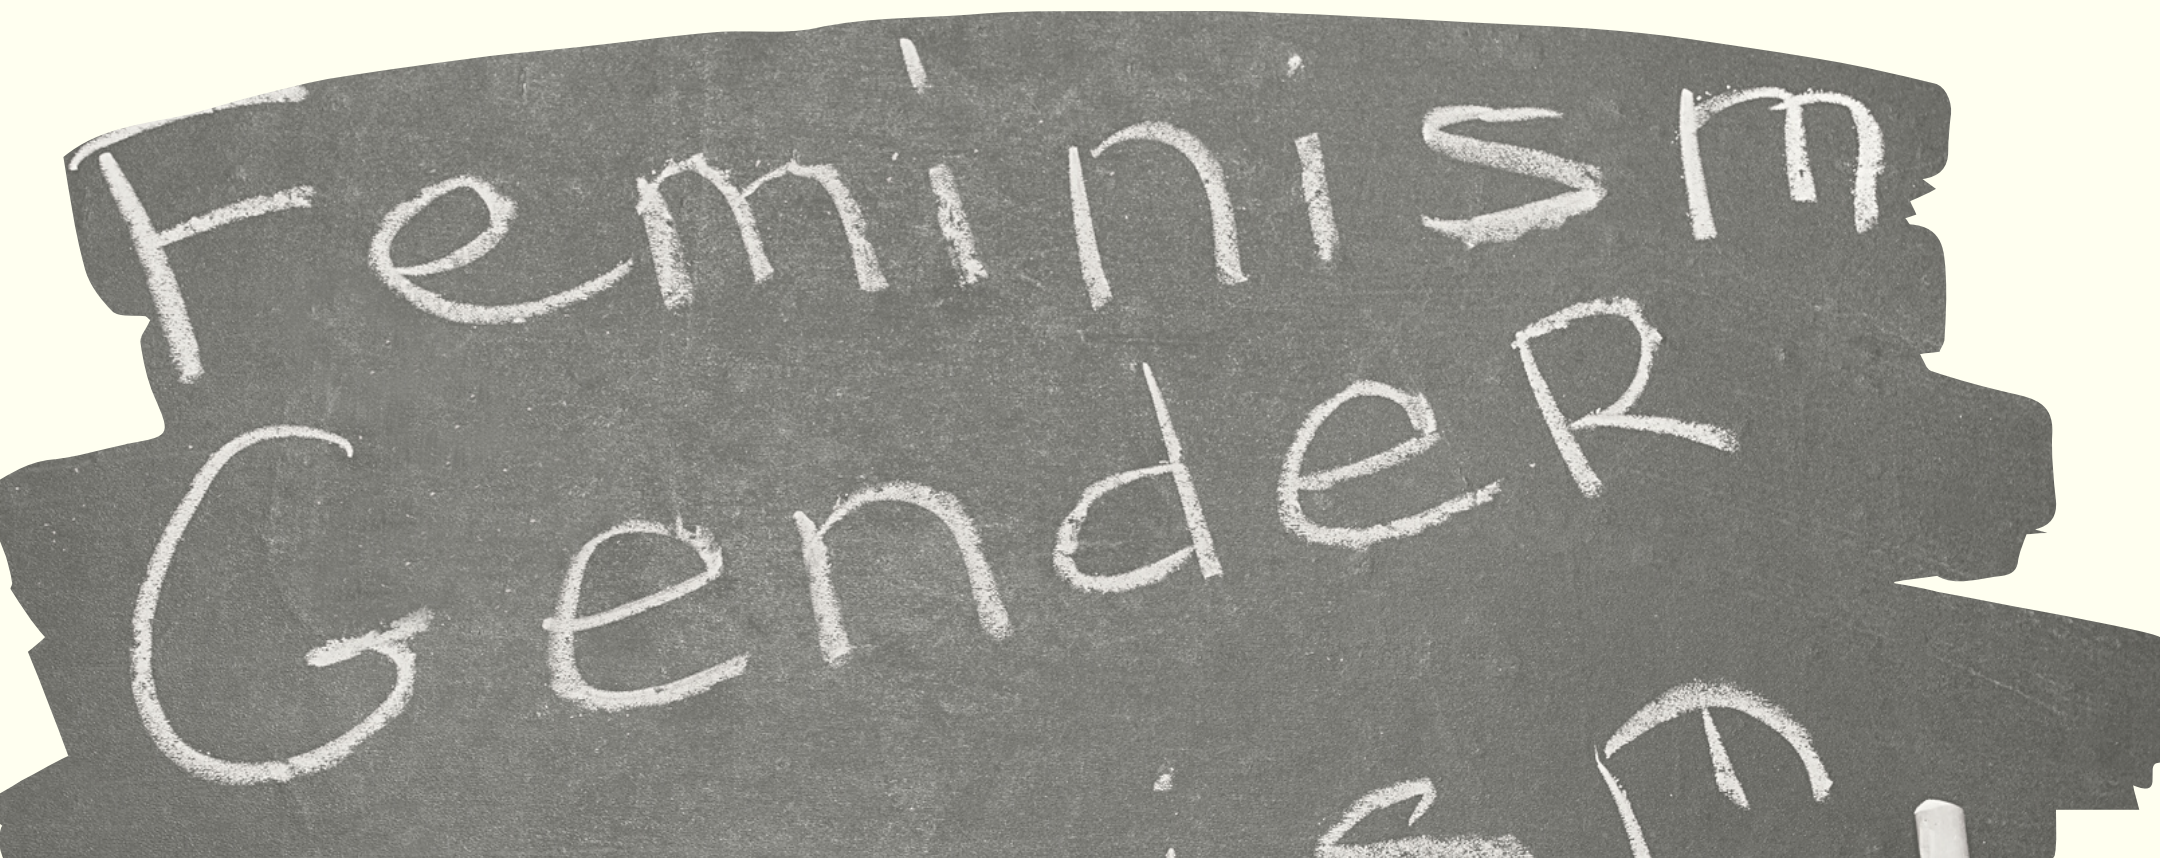 Feminism
GendeR